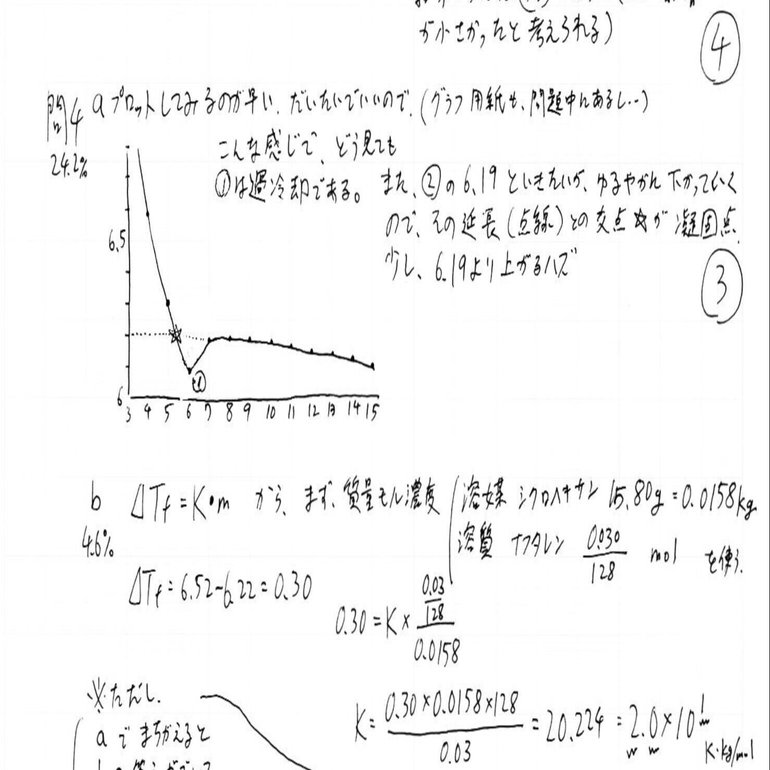 が小さかったと考えられる)
④
問4 a プロットしてみるのが早い. だいたいでいいので. (グラフ用紙も、問題中にあるし…)
24.2%
こんな感じで、どう見ても
①は過冷却である。
また、②の6.19といきたいが、ゆるやかに下がっていく
ので、その延長(点線)との交点☆が凝固点.
少し、6.19より上がるハズ
③
6.5
6
①
3 4 5 6 7 8 9 10 11 12 13 14 15
b ΔTf=K・m から、まず、質量モル濃度
4.6%
溶媒 シクロヘキサン 15.80g=0.0158kg
溶質 ナフタレン 0.030/128 mol を使う.
ΔTf=6.52-6.22=0.30
0.30=K× (0.03/128)/0.0158
※ただし.
aでまちがえると
K= 0.30×0.0158×128/0.03 =20.224 =2.0×10¹
K・kg/mol